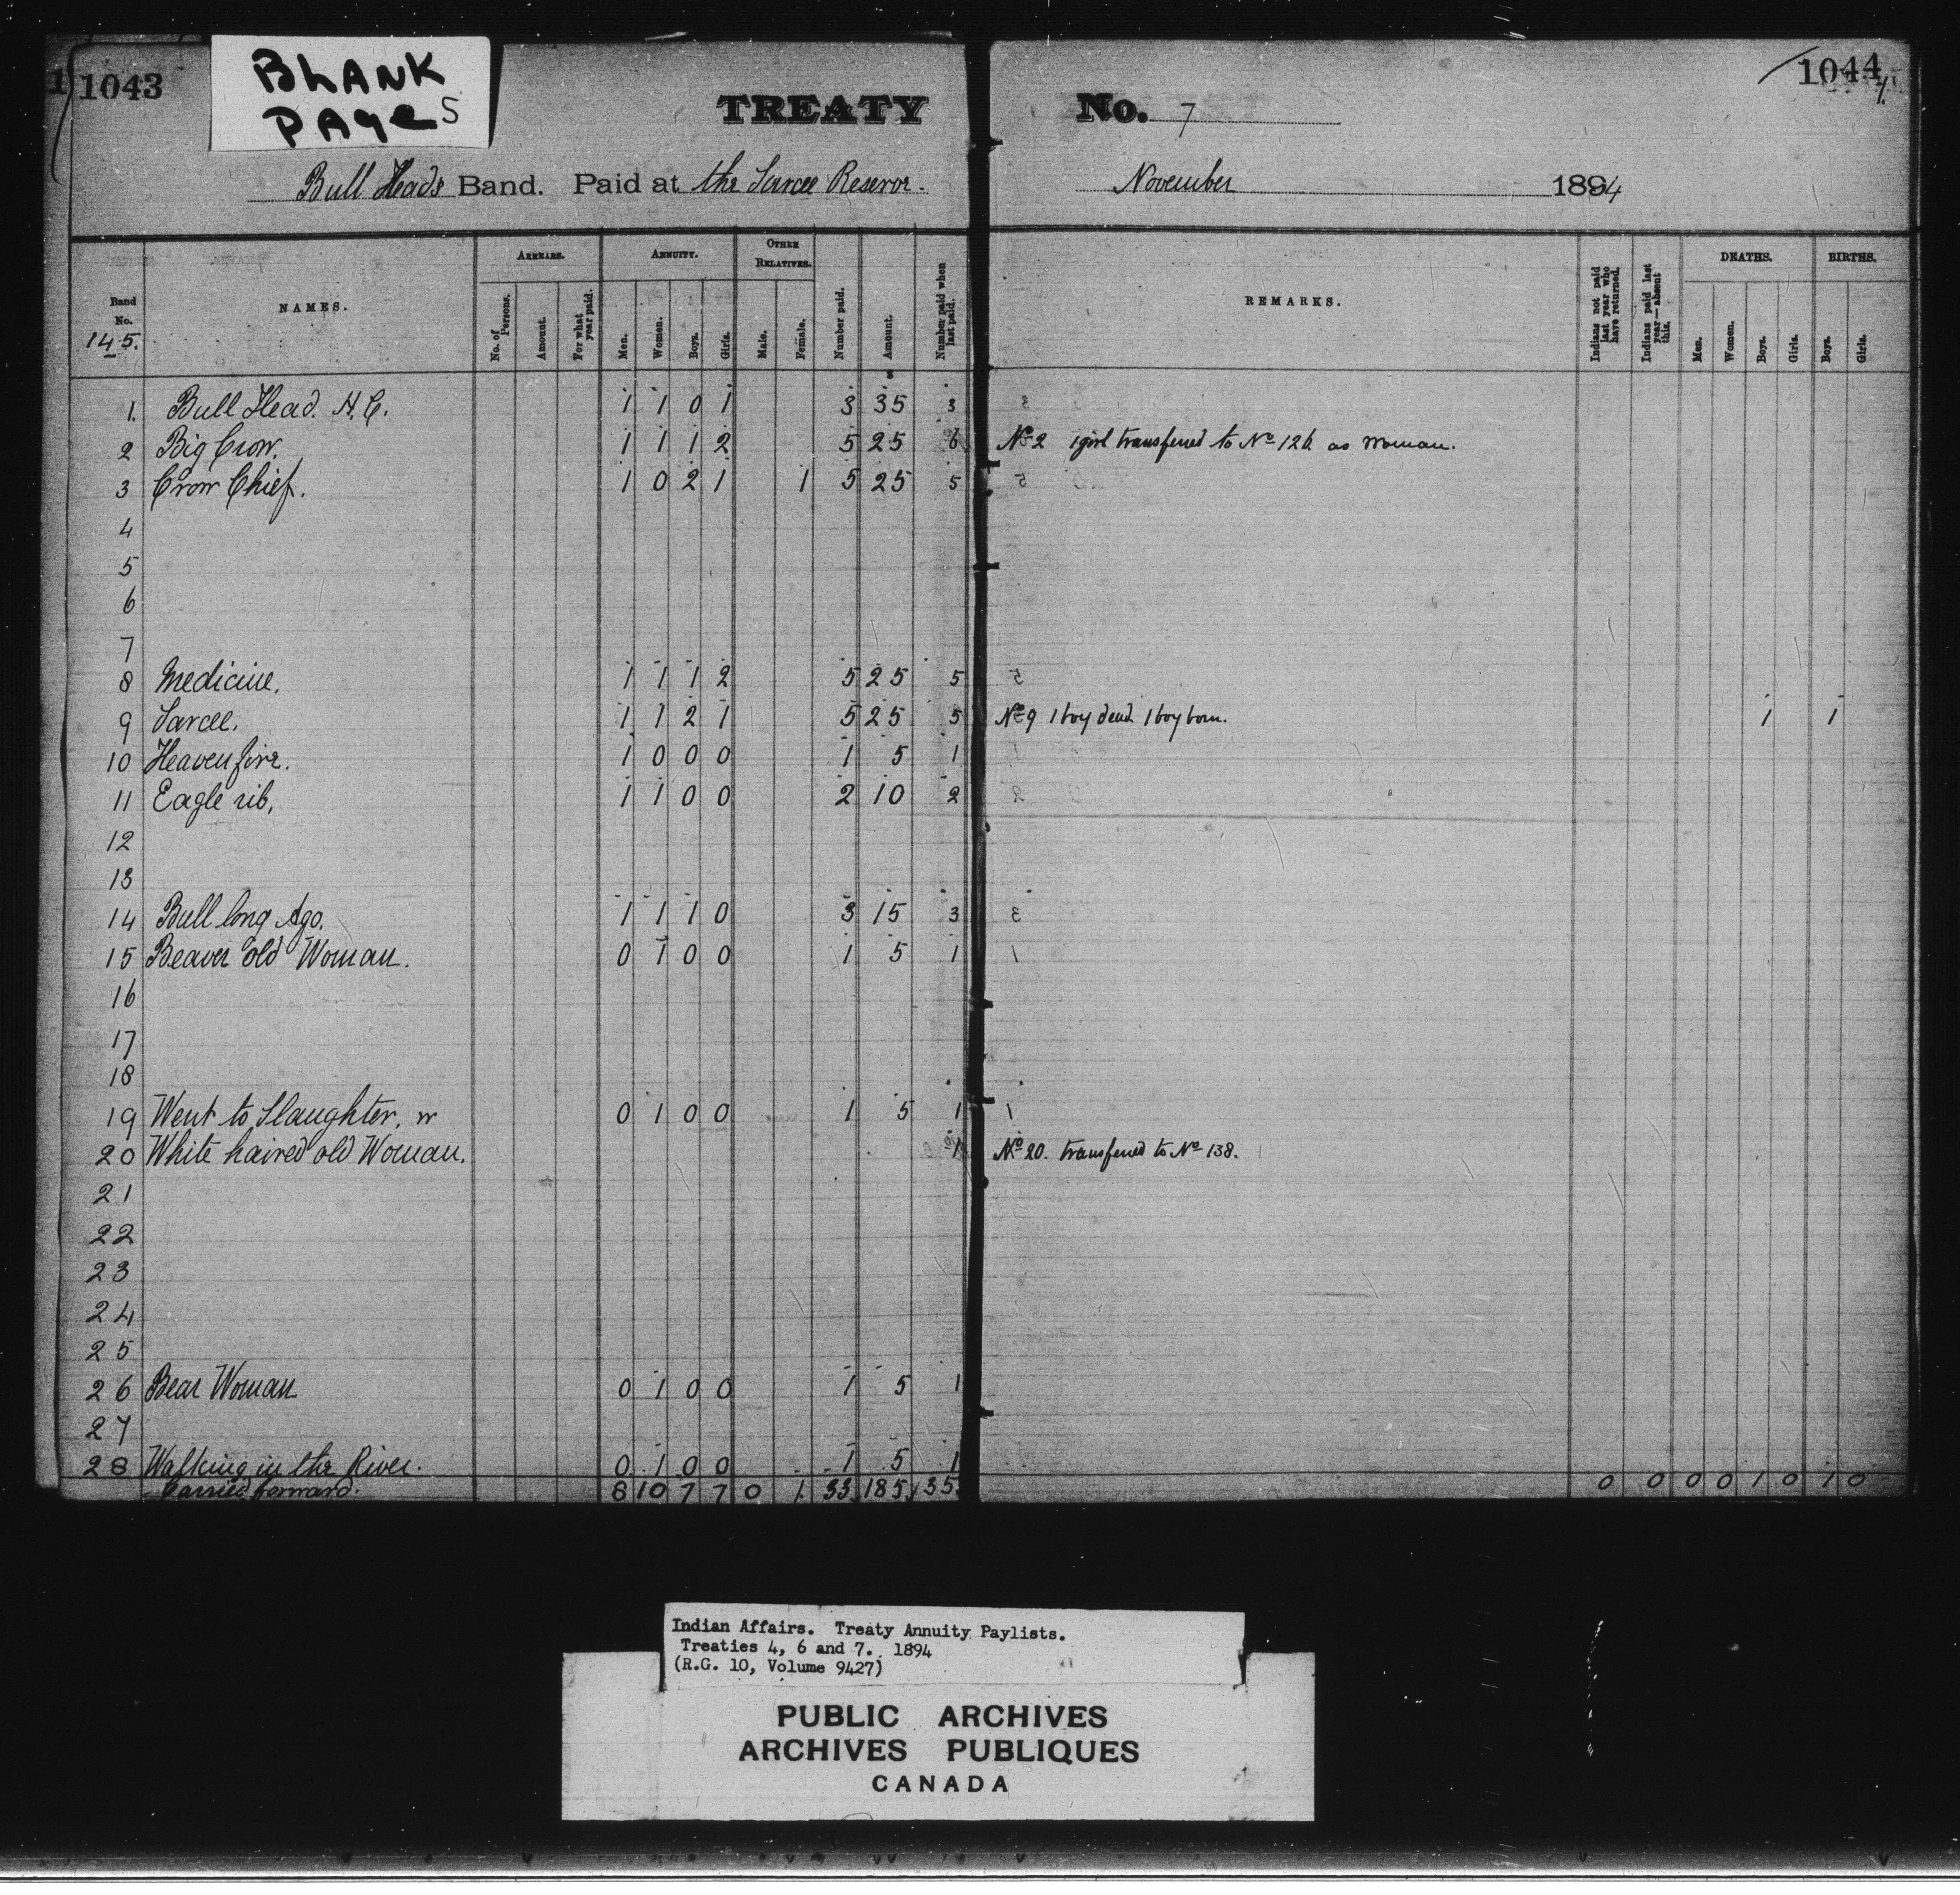 1043
BLANK
PAGES
1044
TREATY No. 7
Bull Heads Band. Paid at the Sarcee Reserve. November 1894
Band No. 145.
NAMES.
ARREARS.
No. of Persons.
Amount.
For what year paid.
ANNUITY.
Men.
Women.
Boys.
Girls.
OTHER RELATIVES.
Male.
Female.
Number paid.
Amount.
Number paid when last paid.
REMARKS.
Indians not paid last year who have returned.
Indians paid last year—absent this.
DEATHS.
Men.
Women.
Boys.
Girls.
BIRTHS.
Boys.
Girls.
1. Bull Head. H.C. 1 1 0 1 3 35 3
2 Big Crow. 1 1 1 2 5 25 6 No 2 1 girl transferred to No 126 as Woman.
3 Crow Chief. 1 0 2 1 1 5 25 5
4
5
6
7
8 Medicine. 1 1 1 2 5 25 5
9 Sarcee. 1 1 2 1 5 25 5 No 9 1 boy dead 1 boy born. 1 1
10 Heavenfire. 1 0 0 0 1 5 1
11 Eagle rib, 1 1 0 0 2 10 2
12
13
14 Bull long Ago. 1 1 1 0 3 15 3
15 Beaver old Woman. 0 1 0 0 1 5 1
16
17
18
19 Went to Slaughter, w 0 1 0 0 1 5 1
20 White haired old Woman. 1 No 20. transferred to No 138.
21
22
23
24
25
26 Bear Woman 0 1 0 0 1 5 1
27
28 Walking in the River. 0 1 0 0 1 5 1
Carried forward. 8 10 7 7 0 1 33 185 35 0 0 0 0 1 0 1 0
Indian Affairs. Treaty Annuity Paylists.
Treaties 4, 6 and 7. 1894
(R.G. 10, Volume 9427)
PUBLIC ARCHIVES
ARCHIVES PUBLIQUES
CANADA